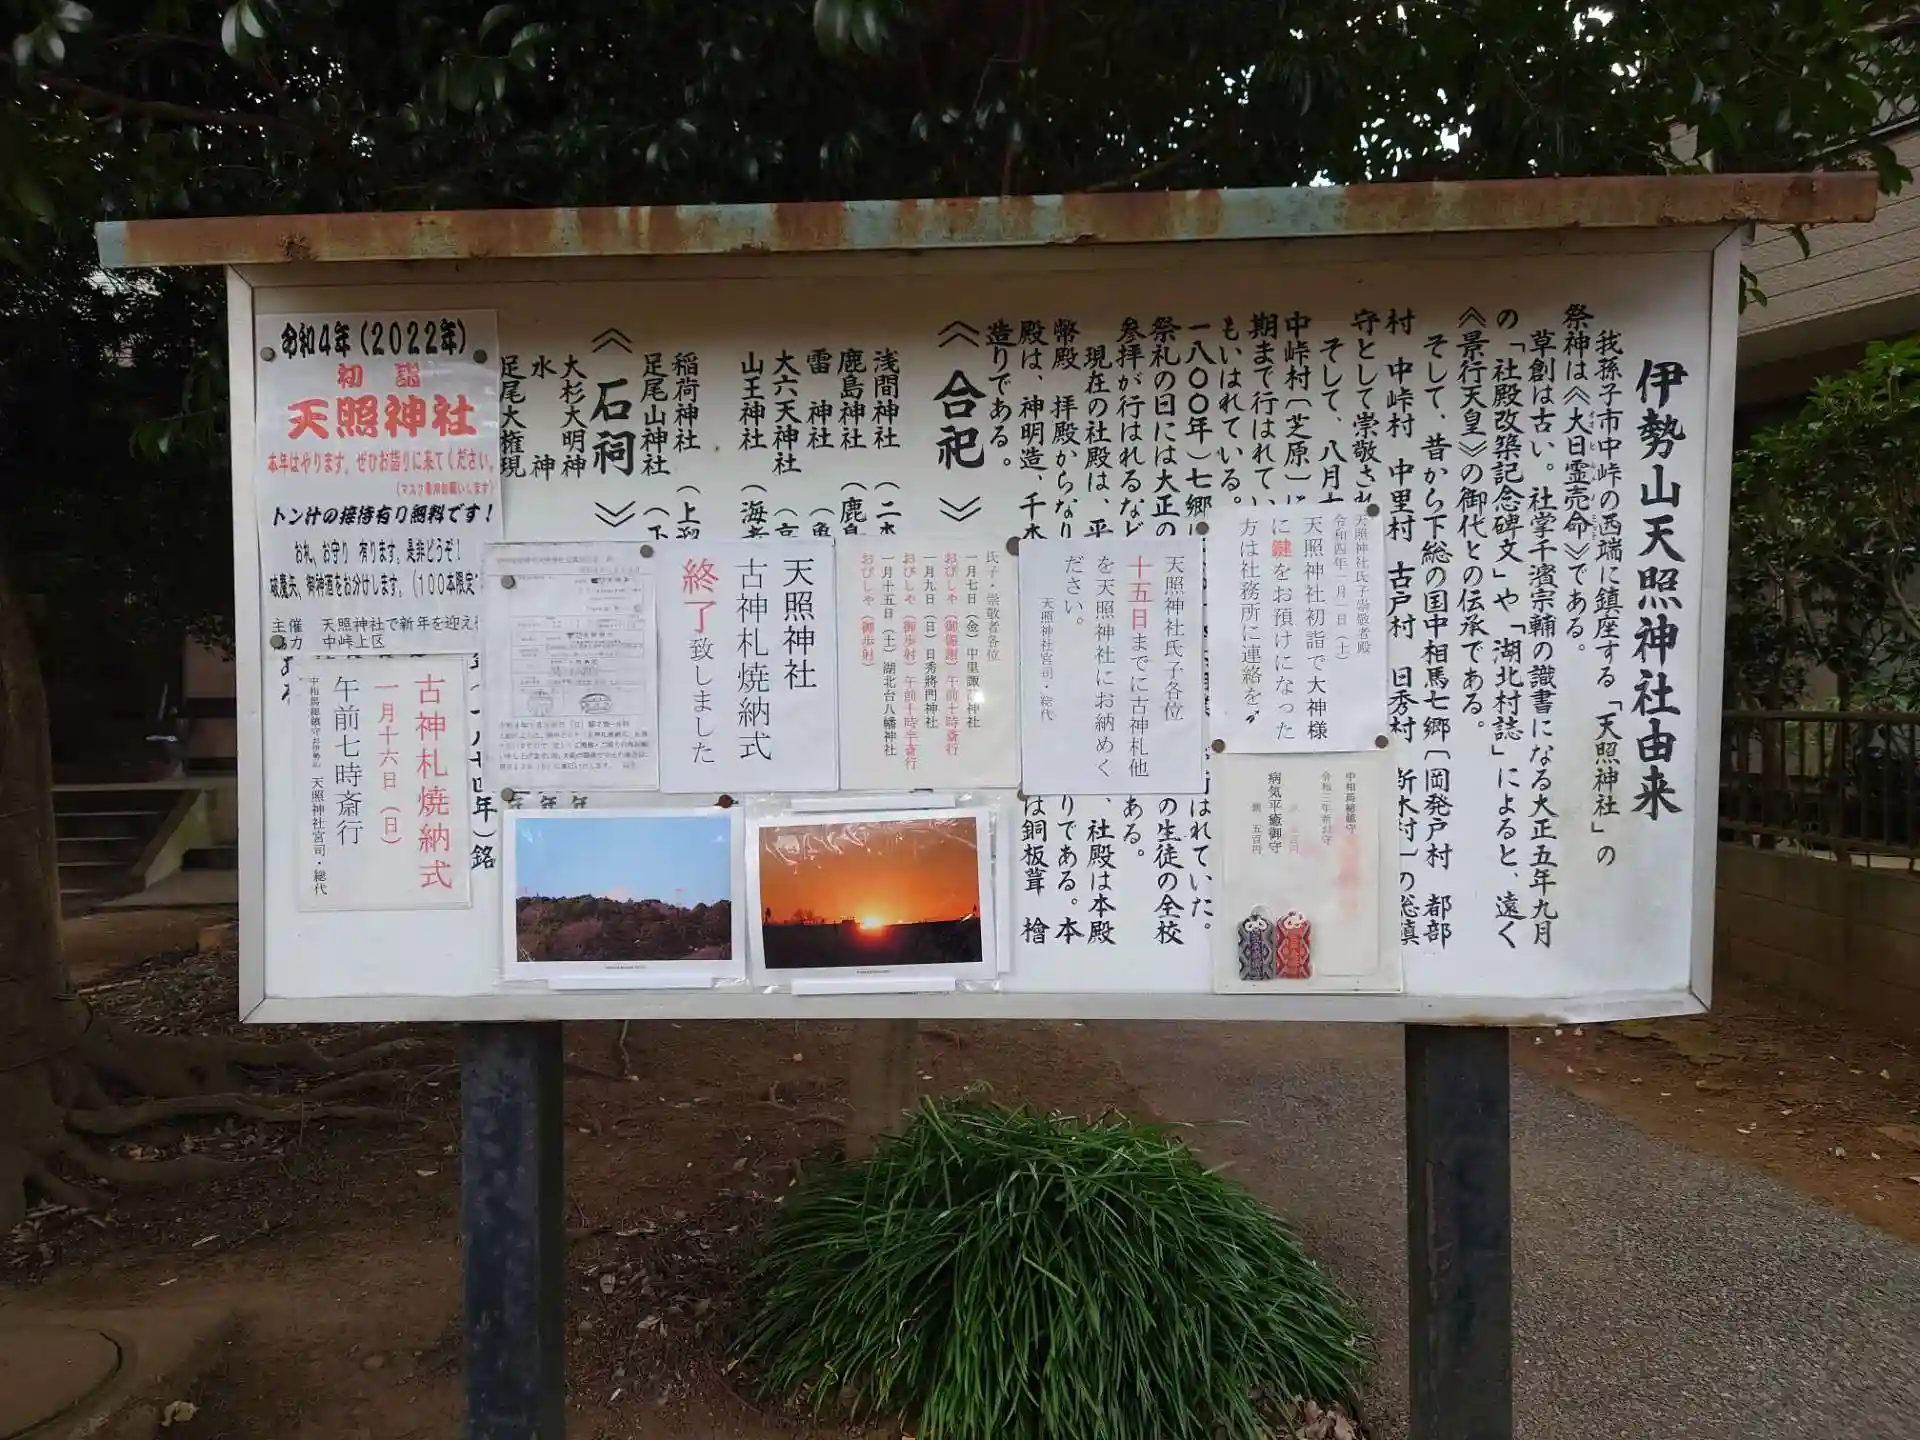 伊勢山天照神社由来
我孫子市中峠の西端に鎮座する「天照神社」の
祭神は《大日霊売命》である。
草創は古い。社掌千濱宗輔の識書になる大正五年九月
の「社殿改築記念碑文」や「湖北村誌」によると、遠く
《景行天皇》の御代との伝承である。
そして、昔から下総の国中相馬七郷〔岡発戸村 都部
村 中峠村 中里村 古戸村 日秀村 新木村〕の総鎮
守として崇敬され
そして、八月
中峠村〔芝原〕に
期まで行はれてい
もいはれている。
一八〇〇年）七郷
はれていた。
祭礼の日には大正の
の生徒の全校
参拝が行はれるなど
ある。
現在の社殿は、平
、社殿は本殿
幣殿 拝殿からなり
りである。本
殿は、神明造、千木
は銅板葺 檜
造りである。
《合祀》
浅間神社
鹿島神社（鹿島
雷 神社
大六天神社
山王神社（海
稲荷神社（上
足尾山神社（下
《石祠》
大杉大明神
水 神
足尾大権現
年）銘
天照神社氏子崇敬者殿
令和四年一月一日（土）
天照神社初詣で大神様
に鍵をお預けになった
方は社務所に連絡を
中相馬総鎮守
令和三年新お守
病気平癒御守
五百円
天照神社氏子各位
十五日までに古神札他
を天照神社にお納めく
ださい。
天照神社宮司・総代
氏子・崇敬者各位
一月七日（金）中里諏訪神社
おびしや（御備謝）午前十時斎行
一月九日（日）日秀將門神社
おびしや（御歩射）午前十時半斎行
一月十五日（土）湖北台八幡神社
おびしや（御歩射）
天照神社
古神札焼納式
終了致しました
令和4年（2022年）
初 詣
天照神社
本年はやります。ぜひお詣りに来てください。
（マスク着用お願いします）
トン汁の接待有り無料です！
お札、お守り 有ります。是非どうぞ！
破魔矢、御神酒をお分けします。（100本限定
主催 天照神社で新年を迎え
協力 中峠上区
古神札焼納式
一月十六日（日）
午前七時斎行
中相馬総鎮守お伊勢山 天照神社宮司・総代